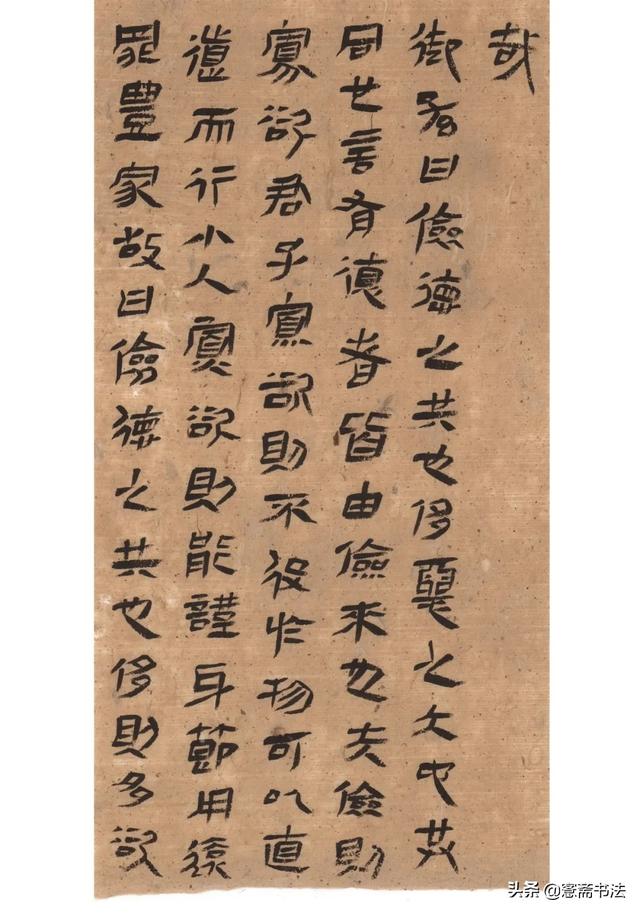 哉
御孫曰儉德之共也侈惡之大也共
同也言有德者皆由儉來也夫儉則
寡欲君子寡欲則不役於物可以直
道而行小人寡欲則能謹身節用遠
罪豐家故曰儉德之共也侈則多欲
头条 @愙斋书法